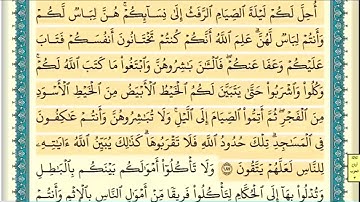 أُحِلَّ لَكُمْ لَيْلَةَ ٱلصِّيَامِ ٱلرَّفَثُ إِلَىٰ نِسَآئِكُمْ ۚ هُنَّ لِبَاسٌ لَّكُمْ
وَأَنتُمْ لِبَاسٌ لَّهُنَّ ۗ عَلِمَ ٱللَّهُ أَنَّكُمْ كُنتُمْ تَخْتَانُونَ أَنفُسَكُمْ فَتَابَ
عَلَيْكُمْ وَعَفَا عَنكُمْ ۖ فَٱلْـَٰٔنَ بَـٰشِرُوهُنَّ وَٱبْتَغُوا۟ مَا كَتَبَ ٱللَّهُ لَكُمْ ۚ
وَكُلُوا۟ وَٱشْرَبُوا۟ حَتَّىٰ يَتَبَيَّنَ لَكُمُ ٱلْخَيْطُ ٱلْأَبْيَضُ مِنَ ٱلْخَيْطِ ٱلْأَسْوَدِ
مِنَ ٱلْفَجْرِ ۖ ثُمَّ أَتِمُّوا۟ ٱلصِّيَامَ إِلَى ٱلَّيْلِ ۚ وَلَا تُبَـٰشِرُوهُنَّ وَأَنتُمْ عَـٰكِفُونَ
فِى ٱلْمَسَـٰجِدِ ۗ تِلْكَ حُدُودُ ٱللَّهِ فَلَا تَقْرَبُوهَا ۗ كَذَٰلِكَ يُبَيِّنُ ٱللَّهُ ءَايَـٰتِهِۦ
لِلنَّاسِ لَعَلَّهُمْ يَتَّقُونَ ١٨٧ وَلَا تَأْكُلُوٓا۟ أَمْوَٰلَكُم بَيْنَكُم بِٱلْبَـٰطِلِ
وَتُدْلُوا۟ بِهَآ إِلَى ٱلْحُكَّامِ لِتَأْكُلُوا۟ فَرِيقًا مِّنْ أَمْوَٰلِ ٱلنَّاسِ بِٱلْإِثْمِ وَأَنتُمْ